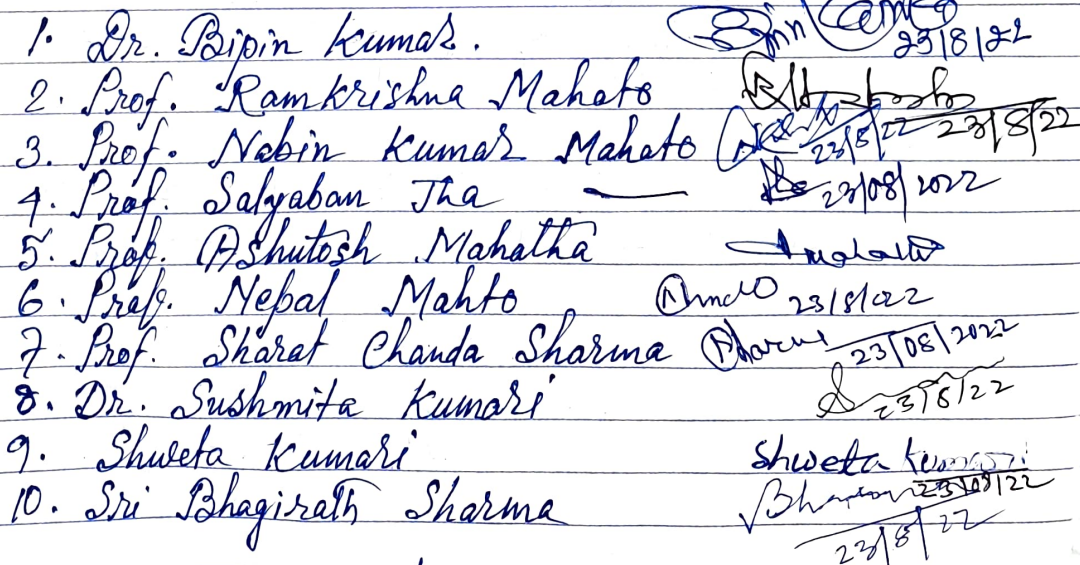 1. Dr. Bipin Kumar. 23/8/22
2. Prof. Ramkrishna Mahato 23/8/22
3. Prof. Nabin Kumar Mahato 23/8/22
4. Prof. Salyaban Jha — 23/08/2022
5. Prof. Ashutosh Mahatha
6. Prof. Nepal Mahto 23/8/022
7. Prof. Sharat Chanda Sharma 23/08/2022
8. Dr. Sushmita Kumari 23/8/22
9. Shweta Kumari Shweta Kumari
10. Sri Bhagirath Sharma 23/08/22
23/8/22